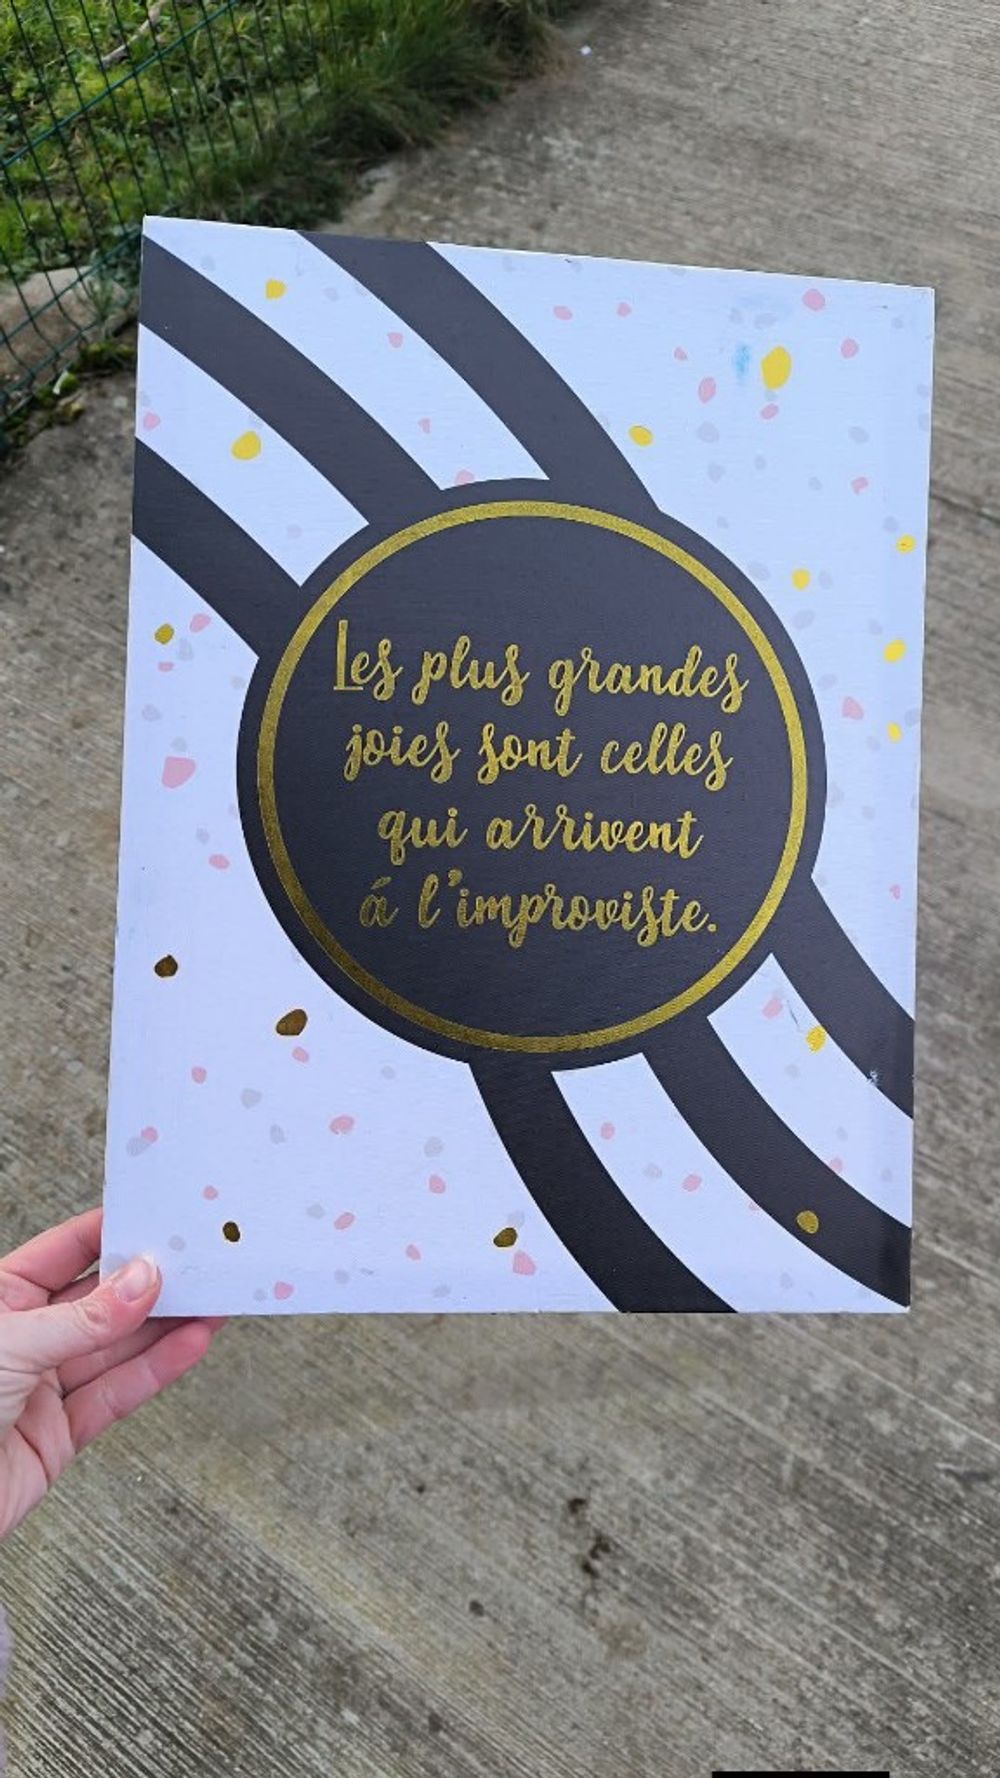 Les plus grandes
joies sont celles
qui arrivent
á l'improviste.